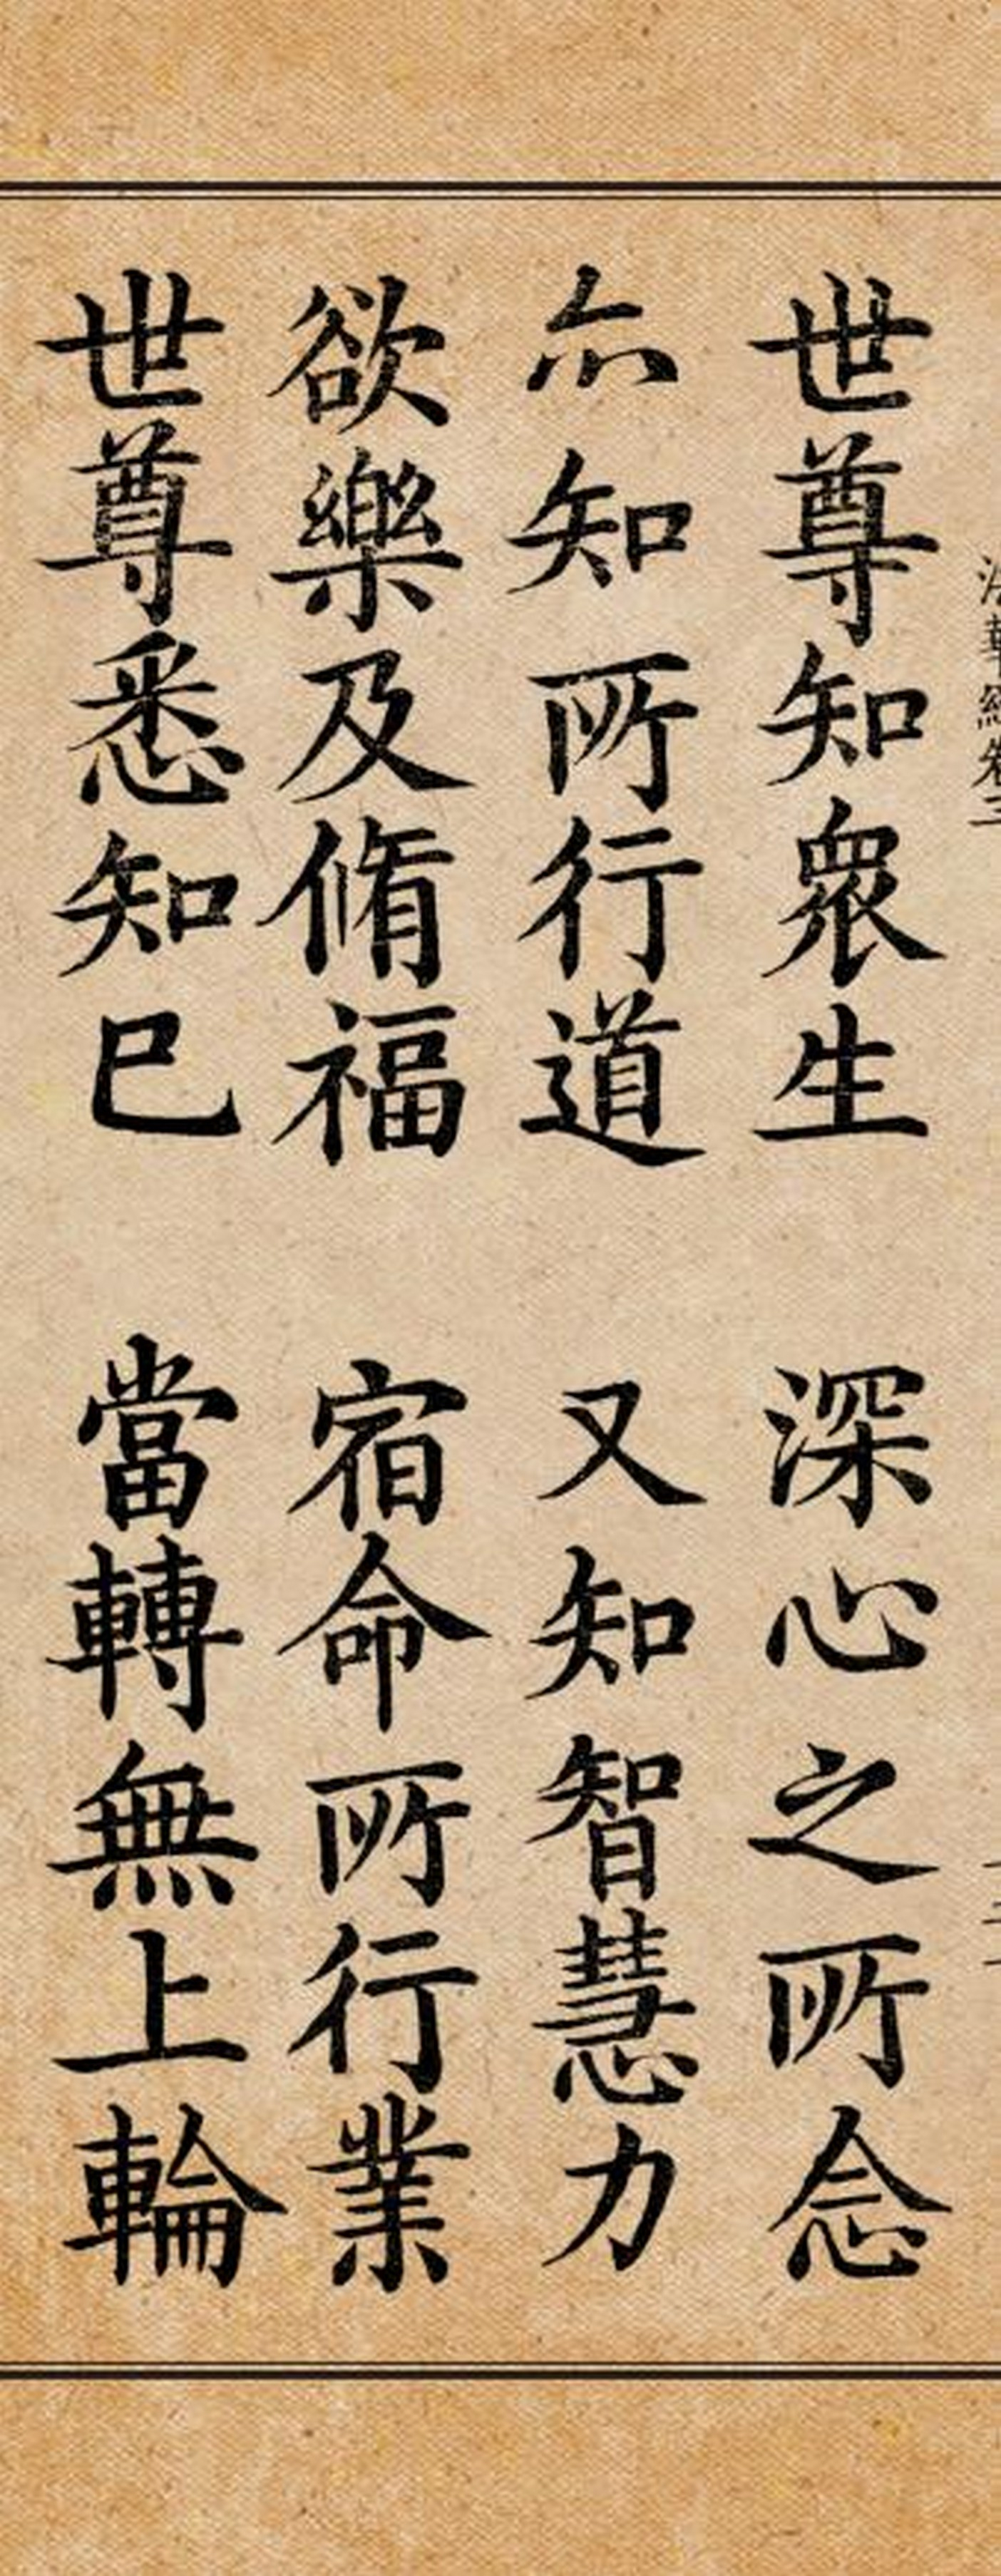 法華經卷三
世尊知眾生 深心之所念
亦知所行道 又知智慧力
欲樂及脩福 宿命所行業
世尊悉知已 當轉無上輪